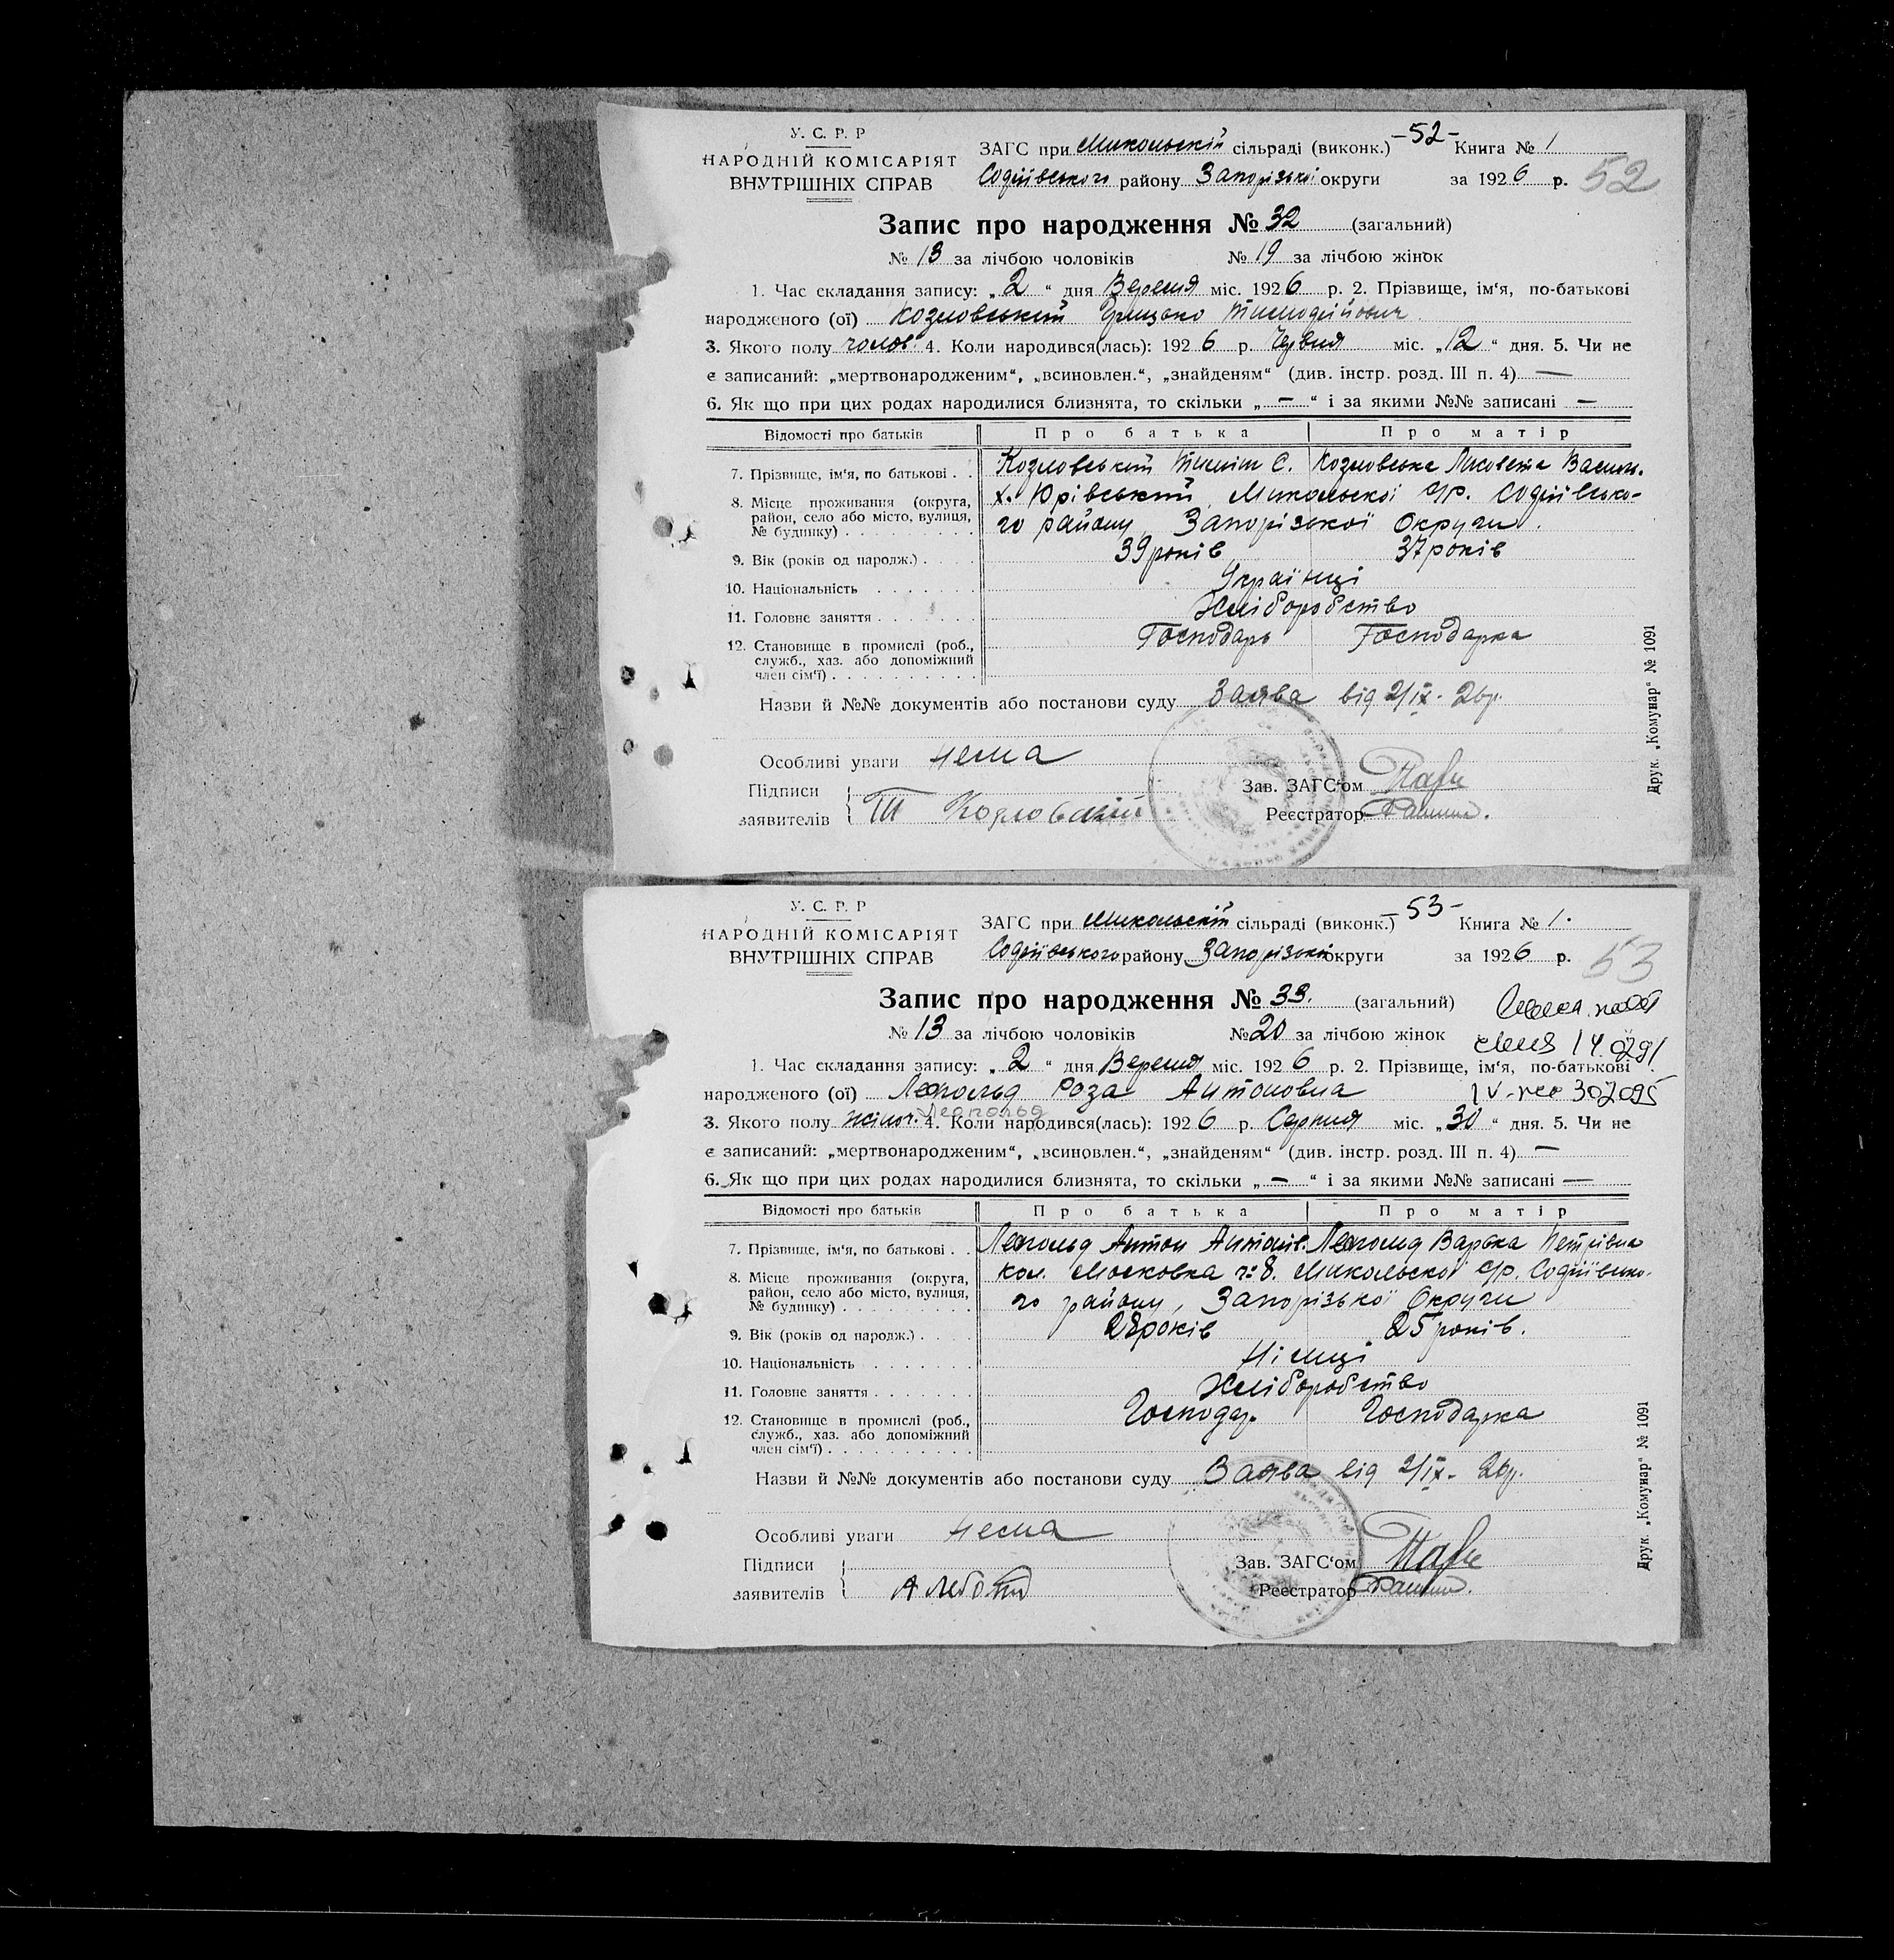 У. С. Р. Р
НАРОДНІЙ КОМІСАРІЯТ
ВНУТРІШНІХ СПРАВ
ЗАГС при Микольскій сільраді (виконк.) -52- Книга № 1
Софіївського району Запорізької округи за 1926 р. 52
Запис про народження № 32 (загальний)
№ 13 за лічбою чоловіків № 19 за лічбою жінок
1. Час складання запису: „2“ дня Вересня міс. 1926 р. 2. Прізвище, ім‘я, по-батькові
народженого (ої) Козловський Грицько Тимофійович
3. Якого полу чолов. 4. Коли народився(лась): 1926 р. Червня міс. „12“ дня. 5. Чи не
є записаний: „мертвонародженим“, „всиновлен.“, „знайденям“ (див. інстр. розд. III п. 4) —
6. Як що при цих родах народилися близнята, то скільки „—“ і за якими №№ записані —
Відомості про батьків Про батька Про матір
7. Прізвище, ім‘я, по батькові . . Козловський Тиміш С. Козловська Лисовета Васил.
8. Місце проживання (округа, район, село або місто, вулиця, № будинку) х. Юрівський, Микольскої с/р. Софіївсько-
го району, Запорізької Округи.
9. Вік (років од народж.) 39 років 37 років
10. Національність Українці
11. Головне заняття Хліборобство
12. Становище в промислі (роб., служб., хаз. або допоміжний член сім‘ї) Господарь Господарка
Назви й №№ документів або постанови суду Заява від 2/IX- 26р.
Особливі уваги нема
Підписи
заявителів Т Козловскій
Зав. ЗАГС‘ом
Реєстратор
Друк. „Комунар“ № 1091
У. С. Р. Р
НАРОДНІЙ КОМІСАРІЯТ
ВНУТРІШНІХ СПРАВ
ЗАГС при Микольскій сільраді (виконк.) -53- Книга № 1.
Софіївського району Запорізької округи за 1926 р. 53
Запис про народження № 33. (загальний)
№ 13 за лічбою чоловіків № 20 за лічбою жінок
1. Час складання запису: „2“ дня Вересня міс. 1926 р. 2. Прізвище, ім‘я, по-батькові
народженого (ої) Леопольд Роза Антоновна
307095
Леопольд
3. Якого полу жіноч. 4. Коли народився(лась): 1926 р. Серпня міс. „30“ дня. 5. Чи не
є записаний: „мертвонародженим“, „всиновлен.“, „знайденям“ (див. інстр. розд. III п. 4) —
6. Як що при цих родах народилися близнята, то скільки „—“ і за якими №№ записані —
Відомості про батьків Про батька Про матір
7. Прізвище, ім‘я, по батькові . . Леопольд Антон Антонів. Леопольд Варька Петрівна
8. Місце проживання (округа, район, село або місто, вулиця, № будинку) кол. Московка № 8. Микольскої с/р. Софіївсько-
го району, Запорізької Округи
9. Вік (років од народж.) 28 років 25 років.
10. Національність Німці
11. Головне заняття Хліборобство
12. Становище в промислі (роб., служб., хаз. або допоміжний член сім‘ї) Господар. Господарка
Назви й №№ документів або постанови суду Заява від 2/IX- 26р.
Особливі уваги нема
Підписи
заявителів
Зав. ЗАГС‘ом
Реєстратор
Друк. „Комунар“ № 1091